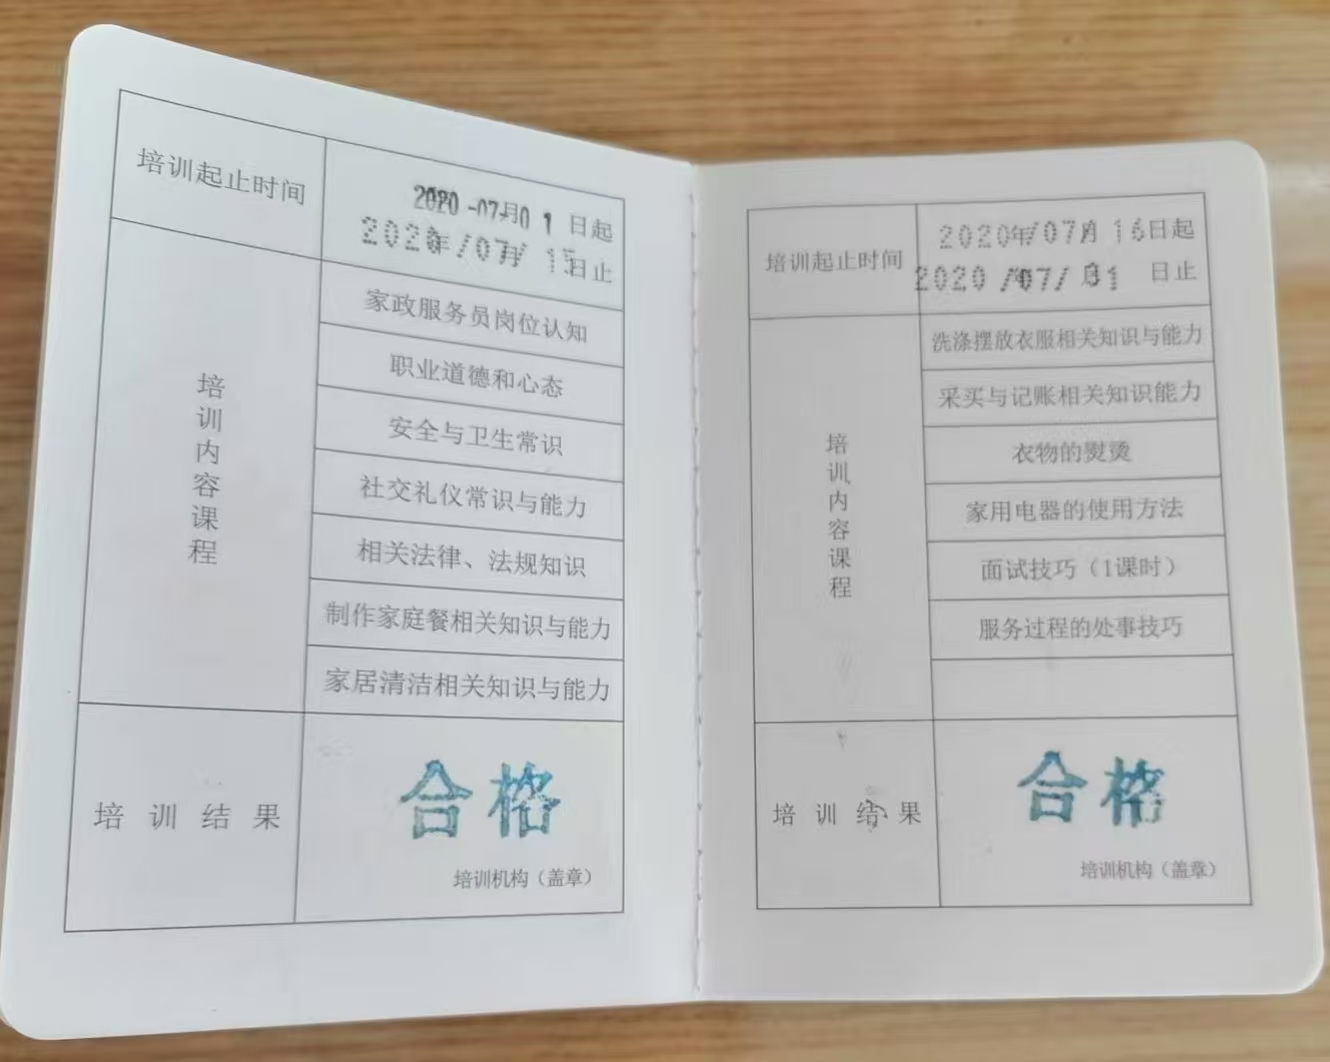 培训起止时间
2020-07月01日起
2020年/07月/15日止
培训内容课程
家政服务员岗位认知
职业道德和心态
安全与卫生常识
社交礼仪常识与能力
相关法律、法规知识
制作家庭餐相关知识与能力
家居清洁相关知识与能力
培训结果
合格
培训机构（盖章）
培训起止时间
2020年/07月16日起
2020/07/31日止
培训内容课程
洗涤摆放衣服相关知识与能力
采买与记账相关知识能力
衣物的熨烫
家用电器的使用方法
面试技巧（1课时）
服务过程的处事技巧
培训结果
合格
培训机构（盖章）